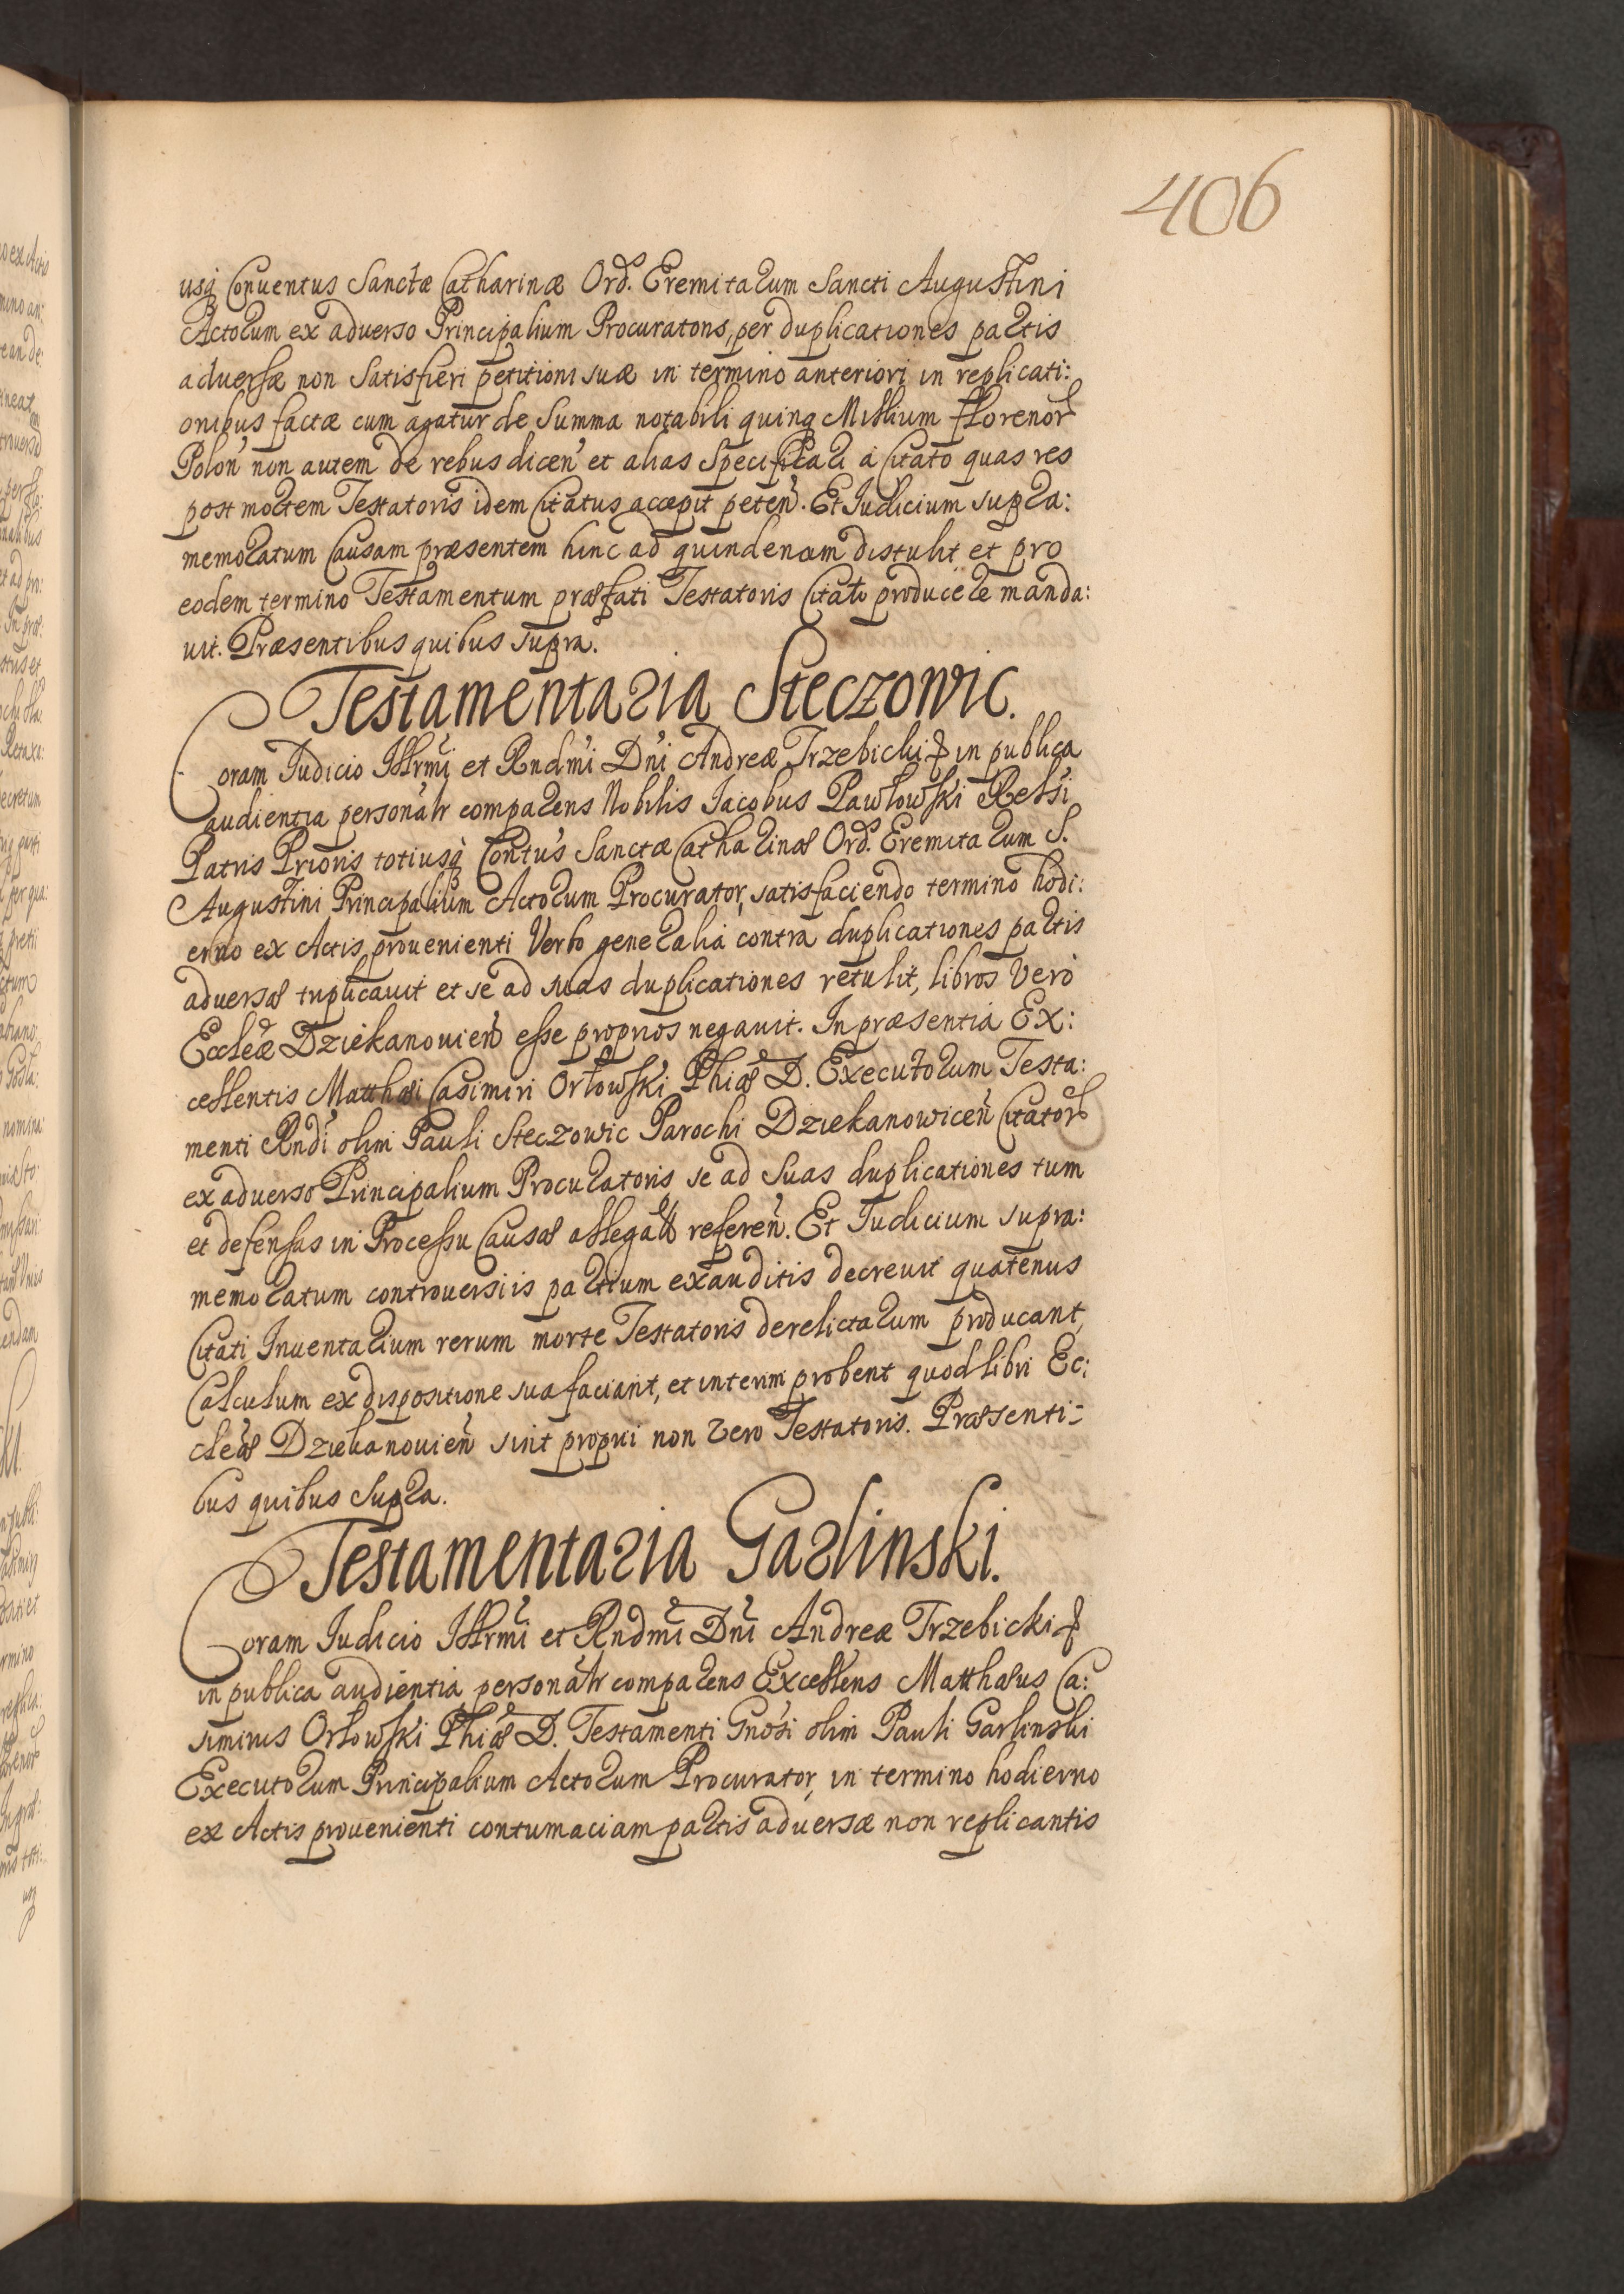 406
usq Conuentus Sanctæ Catharinæ Ord. Eremitarum Sancti Augustini
Actorum ex aduerso Principalium Procuratoris, per duplicationes partis
aduersæ non satisfieri petitioni suæ in termino anteriori in replicati:
onibus factæ cum agatur de Summa notabili quinq Millium florenor
Polon non autem de rebus dicen et alias Specificari à Citato quas res
post mortem Testatoris idem Citatus accepit peten. Et Iudicium supra:
memoratum Causam præsentem hinc ad quindenam distulit et pro
eodem termino Testamentum præfati Testatoris Citato producere manda:
uit. Præsentibus quibus supra.
Testamentaria Steczowic.
Coram Iudicio Illrmi et Rndmi Dni Andreæ Trzebicki & in publica
audientia personalr comparens Nobilis Iacobus Pawłowski Relsi
Patris Prioris totiusq Contus Sanctæ Catharinæ Ord. Eremitarum S.
Augustini Principalium Actorum Procurator, satisfaciendo termino hodi:
erno ex Actis prouenienti Verbo generalia contra duplicationes partis
aduersæ triplicauit et se ad suas duplicationes retulit, libros Verò
Eccleæ Dziekanouien esse proprios negauit. In præsentia Ex:
cellentis Matthæi Casimiri Orłowski Phiæ D. Executorum Testa:
menti Rndi olim Pauli Steczowic Parochi Dziekanowicen Citator
ex aduerso Principalium Procuratoris se ad Suas duplicationes tum
et defensas in Processu Causæ allegat referen. Et Iudicium supra:
memoratum controuersiis partium exauditis decreuit quatenus
Citati Inuentarium rerum morte Testatoris derelictarum producant,
Calculum ex dispositione sua faciant, et interim probent quod libri Ec:
cleæ Dziekanouien sint proprii non vero Testatoris. Præsenti-
bus quibus Supra.
Testamentaria Garlinski.
Coram Iudicio Illrmi et Rndmi Dni Andreæ Trzebicki &
in publica audientia personalr comparens Excellens Matthæus Ca:
simirus Orłowski Phiæ D. Testamenti Gnosi olim Pauli Garlinski
Executorum Principalium Actorum Procurator, in termino hodierno
ex Actis prouenienti contumaciam partis aduersæ non replicantis